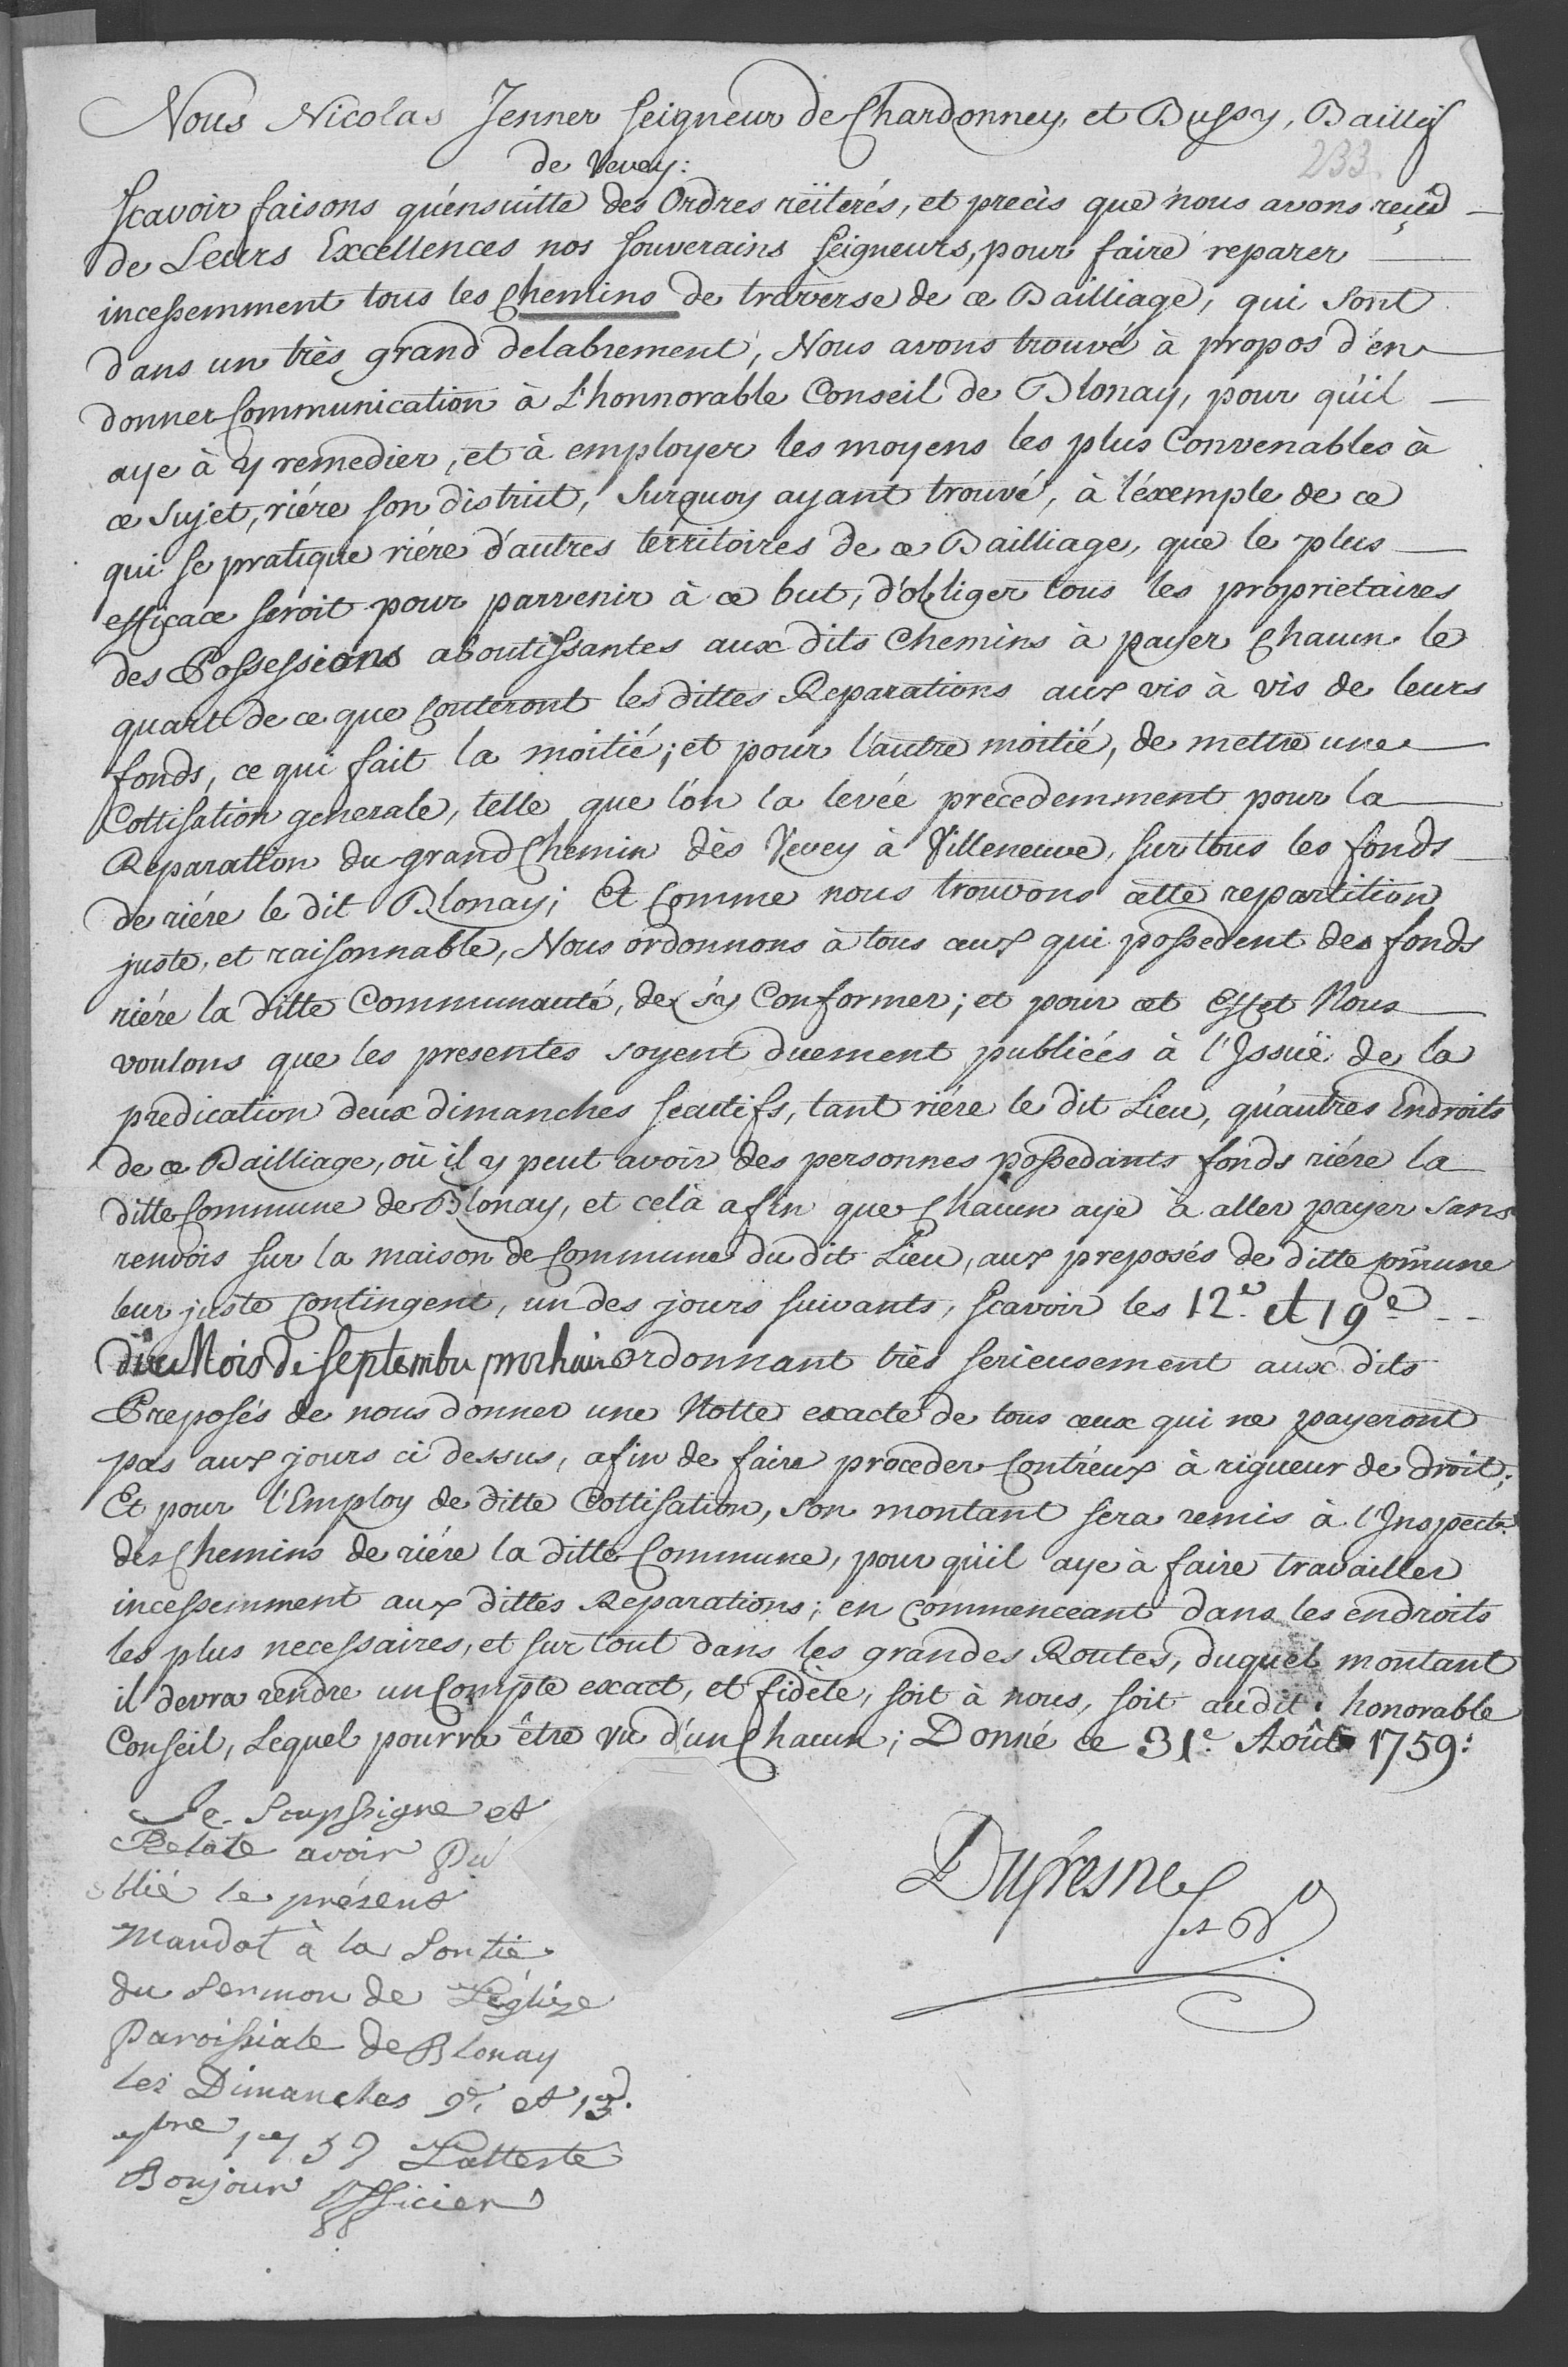 Nous Nicolas Jenner Seigneur de Chardonney et Bussy, Baillif
de Vevey:
233.
Scavoir faisons qu'ensuitte des Ordres réïterés, et precis que nous avons reçu
de Leurs Excellences nos Souverains Seigneurs, pour faire reparer
incessemment tous les Chemins de traverse de ce Bailliage, qui sont
dans un très grand delabrement, Nous avons trouvé à propos d'en
donner Communication à L'honnorable Conseil de Blonay, pour qu'il
aye à y remedier, et à employer les moyens les plus Convenables à
ce sujet, riére son district, Surquoy ayant trouvé, à l'éxemple de ce
qui se pratique riére d'autres territoires de ce Bailliage, que le plus
efficace seroit pour parvenir à ce but, d'obliger tous les proprietaires
des Possessions aboutissantes aux dits Chemins à payer Chacun le
quart de ce que Couteront les dittes Reparations aux vis à vis de leurs
fonds, ce qui fait la moitié; et pour l'autre moitié, de mettre une
Cottisation generale, telle que l'on la levée precedemment pour la
Reparation du grand Chemin dès Vevey à Villeneuve, sur tous les fonds
de riére le dit Blonay; Et Comme nous trouvons cette repartition
juste, et raisonnable, Nous ordonnons à tous ceux qui possedent des fonds
riére la ditte Communauté, de s'y Conformer; et pour cet Effet Nous
voulons que les presentes soyent duement publiées à l'Issuë de la
predication deux dimanches secutifs, tant riére le dit Lieu, qu'autres Endroits
de ce Bailliage, où il y peut avoir des personnes possedants fonds riére la
ditte Commune de Blonay, et celà afin que Chacun aye à aller payer sans
renvois sur la maison de Commune du dit Lieu, aux preposés de ditte Com̃une
leur juste Contingent, un des jours suivants, scavoir les 12.e et 19.e
du Mois de Septembre prochain ordonnant très serieusement aux dits
Preposés de nous donner une Notte exacte de tous ceux qui ne payeront
pas aux jours ci dessus, afin de faire proceder Contr'eux à rigueur de droit;
Et pour l'Employ de ditte Cottisation, son montant sera remis à l'Inspectr.
des Chemins de riére la ditte Commune, pour qu'il aye à faire travailler
incessemment aux dittes Reparations; en Commenceant dans les endroits
les plus necessaires, et sur tout dans les grandes Routes, duquel montant
il devra rendre un Compte exact, et fidèle, soit à nous, soit au dit honorable
Conseil, Lequel pourra être vu d'un Chacun; Donné ce 31.e Août 1759:
Je Soupssigne et
Relate avoir Pu
blié le présent
Mandat à la Sortie
du Sermon de L'églize
Paroissiale de Blonay
les Dimanches 9.e et
7bre 1759 L'atteste
Bonjour Officier
Dufresne